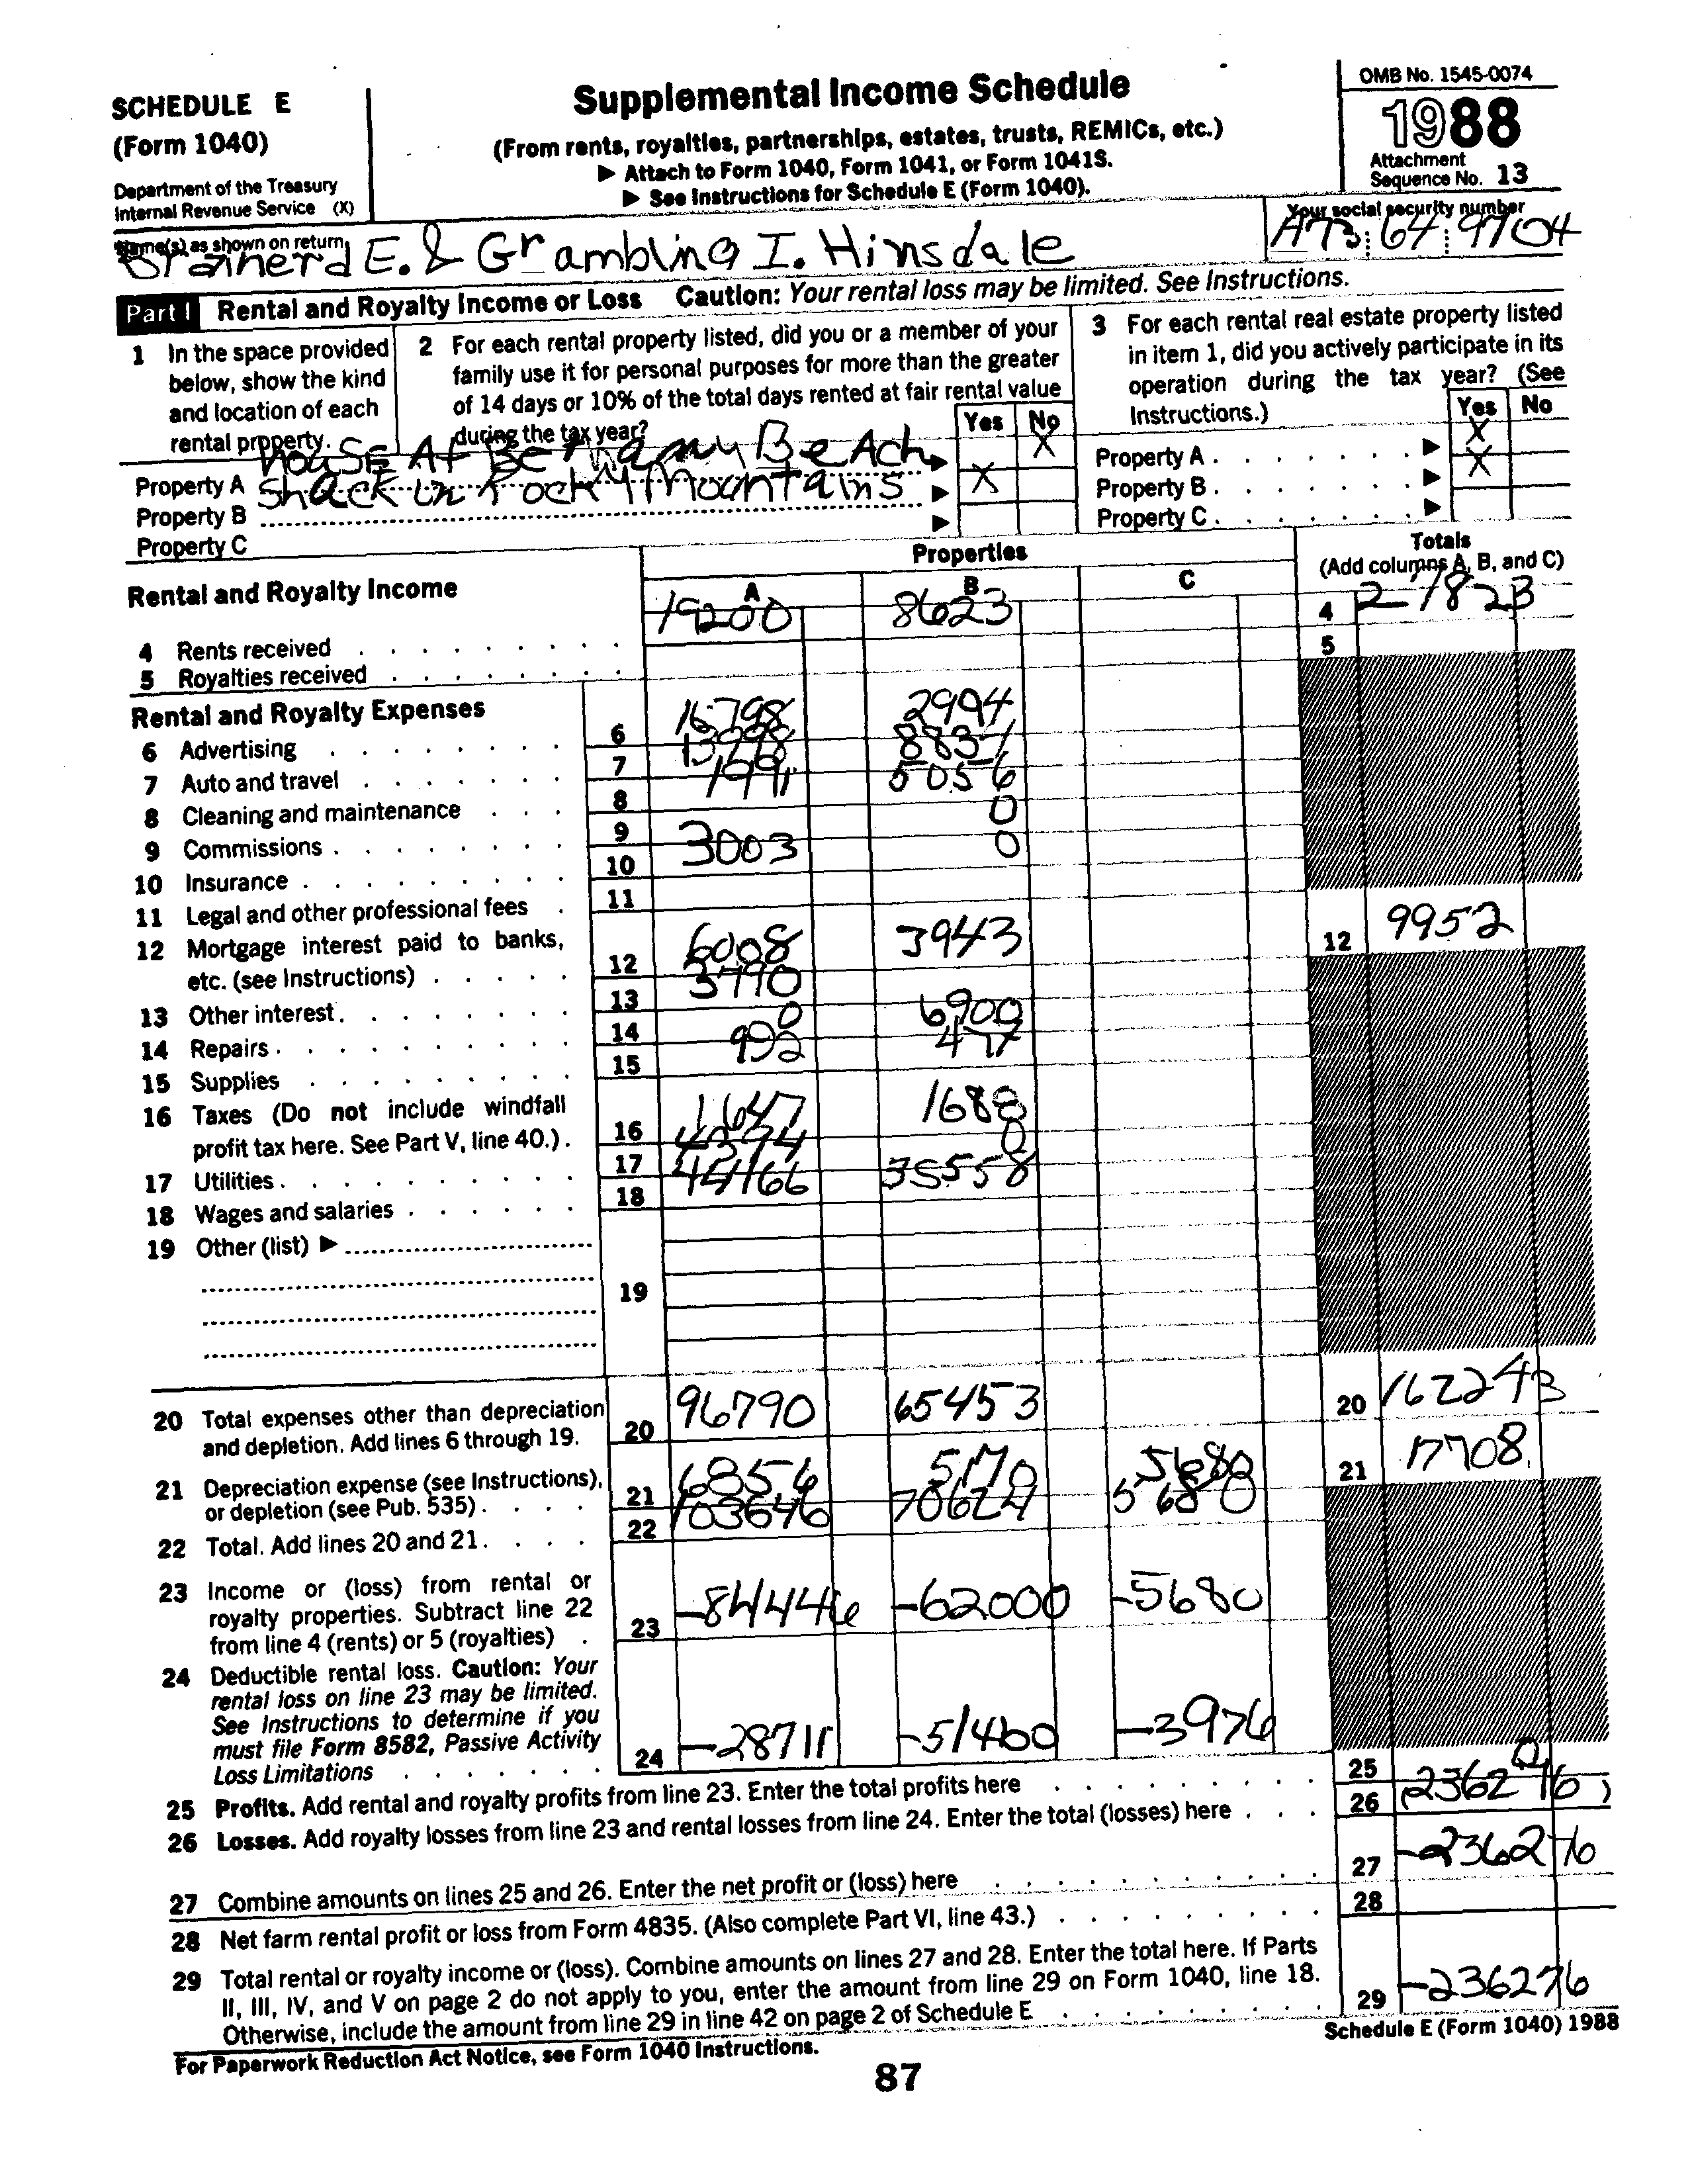 SCHEDULE E
(Form 1040)
Department of the Treasury
Internal Revenue Service (X)
Supplemental Income Schedule
(From rents, royalties, partnerships, estates, trusts, REMICs, etc.)
▶ Attach to Form 1040, Form 1041, or Form 1041S.
▶ See Instructions for Schedule E (Form 1040).
OMB No. 1545-0074
1988
Attachment
Sequence No. 13
Name(s) as shown on return
Brainerd E. & Grambling I. Hinsdale
Your social security number
A73 64 9704
Part I Rental and Royalty Income or Loss Caution: Your rental loss may be limited. See Instructions.
1 In the space provided
below, show the kind
and location of each
rental property.
2 For each rental property listed, did you or a member of your
family use it for personal purposes for more than the greater
of 14 days or 10% of the total days rented at fair rental value
during the tax year?
Yes No
3 For each rental real estate property listed
in item 1, did you actively participate in its
operation during the tax year? (See
Instructions.)
Yes No
Property A House At Bethany Beach X
Property B Shack in Rocky Mountains X
Property C
Property A X
Property B X
Property C
Rental and Royalty Income
Properties
A B C
Totals
(Add columns A, B, and C)
4 Rents received 19200 8623 4 27823
5 Royalties received 5
Rental and Royalty Expenses
6 Advertising 6 16798 2994
7 Auto and travel 7 8837
8 Cleaning and maintenance 8 1991 5056
9 Commissions 9 0
10 Insurance 10 3003 0
11 Legal and other professional fees 11
12 Mortgage interest paid to banks,
etc. (see Instructions) 12 6008 3943 12 9952
13 Other interest 13 3790
14 Repairs 14 0 6900
15 Supplies 15 992 477
16 Taxes (Do not include windfall
profit tax here. See Part V, line 40.) 16 1647 1688
17 Utilities 17 0
18 Wages and salaries 18 44166 35558
19 Other (list) ▶
19
20 Total expenses other than depreciation
and depletion. Add lines 6 through 19. 20 96790 65453 20 162243
21 Depreciation expense (see Instructions),
or depletion (see Pub. 535) 21 6856 5170 5680 21 17708
22 Total. Add lines 20 and 21 22 103646 70624 5680
23 Income or (loss) from rental or
royalty properties. Subtract line 22
from line 4 (rents) or 5 (royalties) 23 -84446 -62000 -5680
24 Deductible rental loss. Caution: Your
rental loss on line 23 may be limited.
See Instructions to determine if you
must file Form 8582, Passive Activity
Loss Limitations 24 -28711 -51460 -3976
25 Profits. Add rental and royalty profits from line 23. Enter the total profits here 25 0
26 Losses. Add royalty losses from line 23 and rental losses from line 24. Enter the total (losses) here 26 (236276)
27 Combine amounts on lines 25 and 26. Enter the net profit or (loss) here 27 -236276
28 Net farm rental profit or loss from Form 4835. (Also complete Part VI, line 43.) 28
29 Total rental or royalty income or (loss). Combine amounts on lines 27 and 28. Enter the total here. If Parts
II, III, IV, and V on page 2 do not apply to you, enter the amount from line 29 on Form 1040, line 18.
Otherwise, include the amount from line 29 in line 42 on page 2 of Schedule E 29 -236276
For Paperwork Reduction Act Notice, see Form 1040 Instructions.
Schedule E (Form 1040) 1988
87